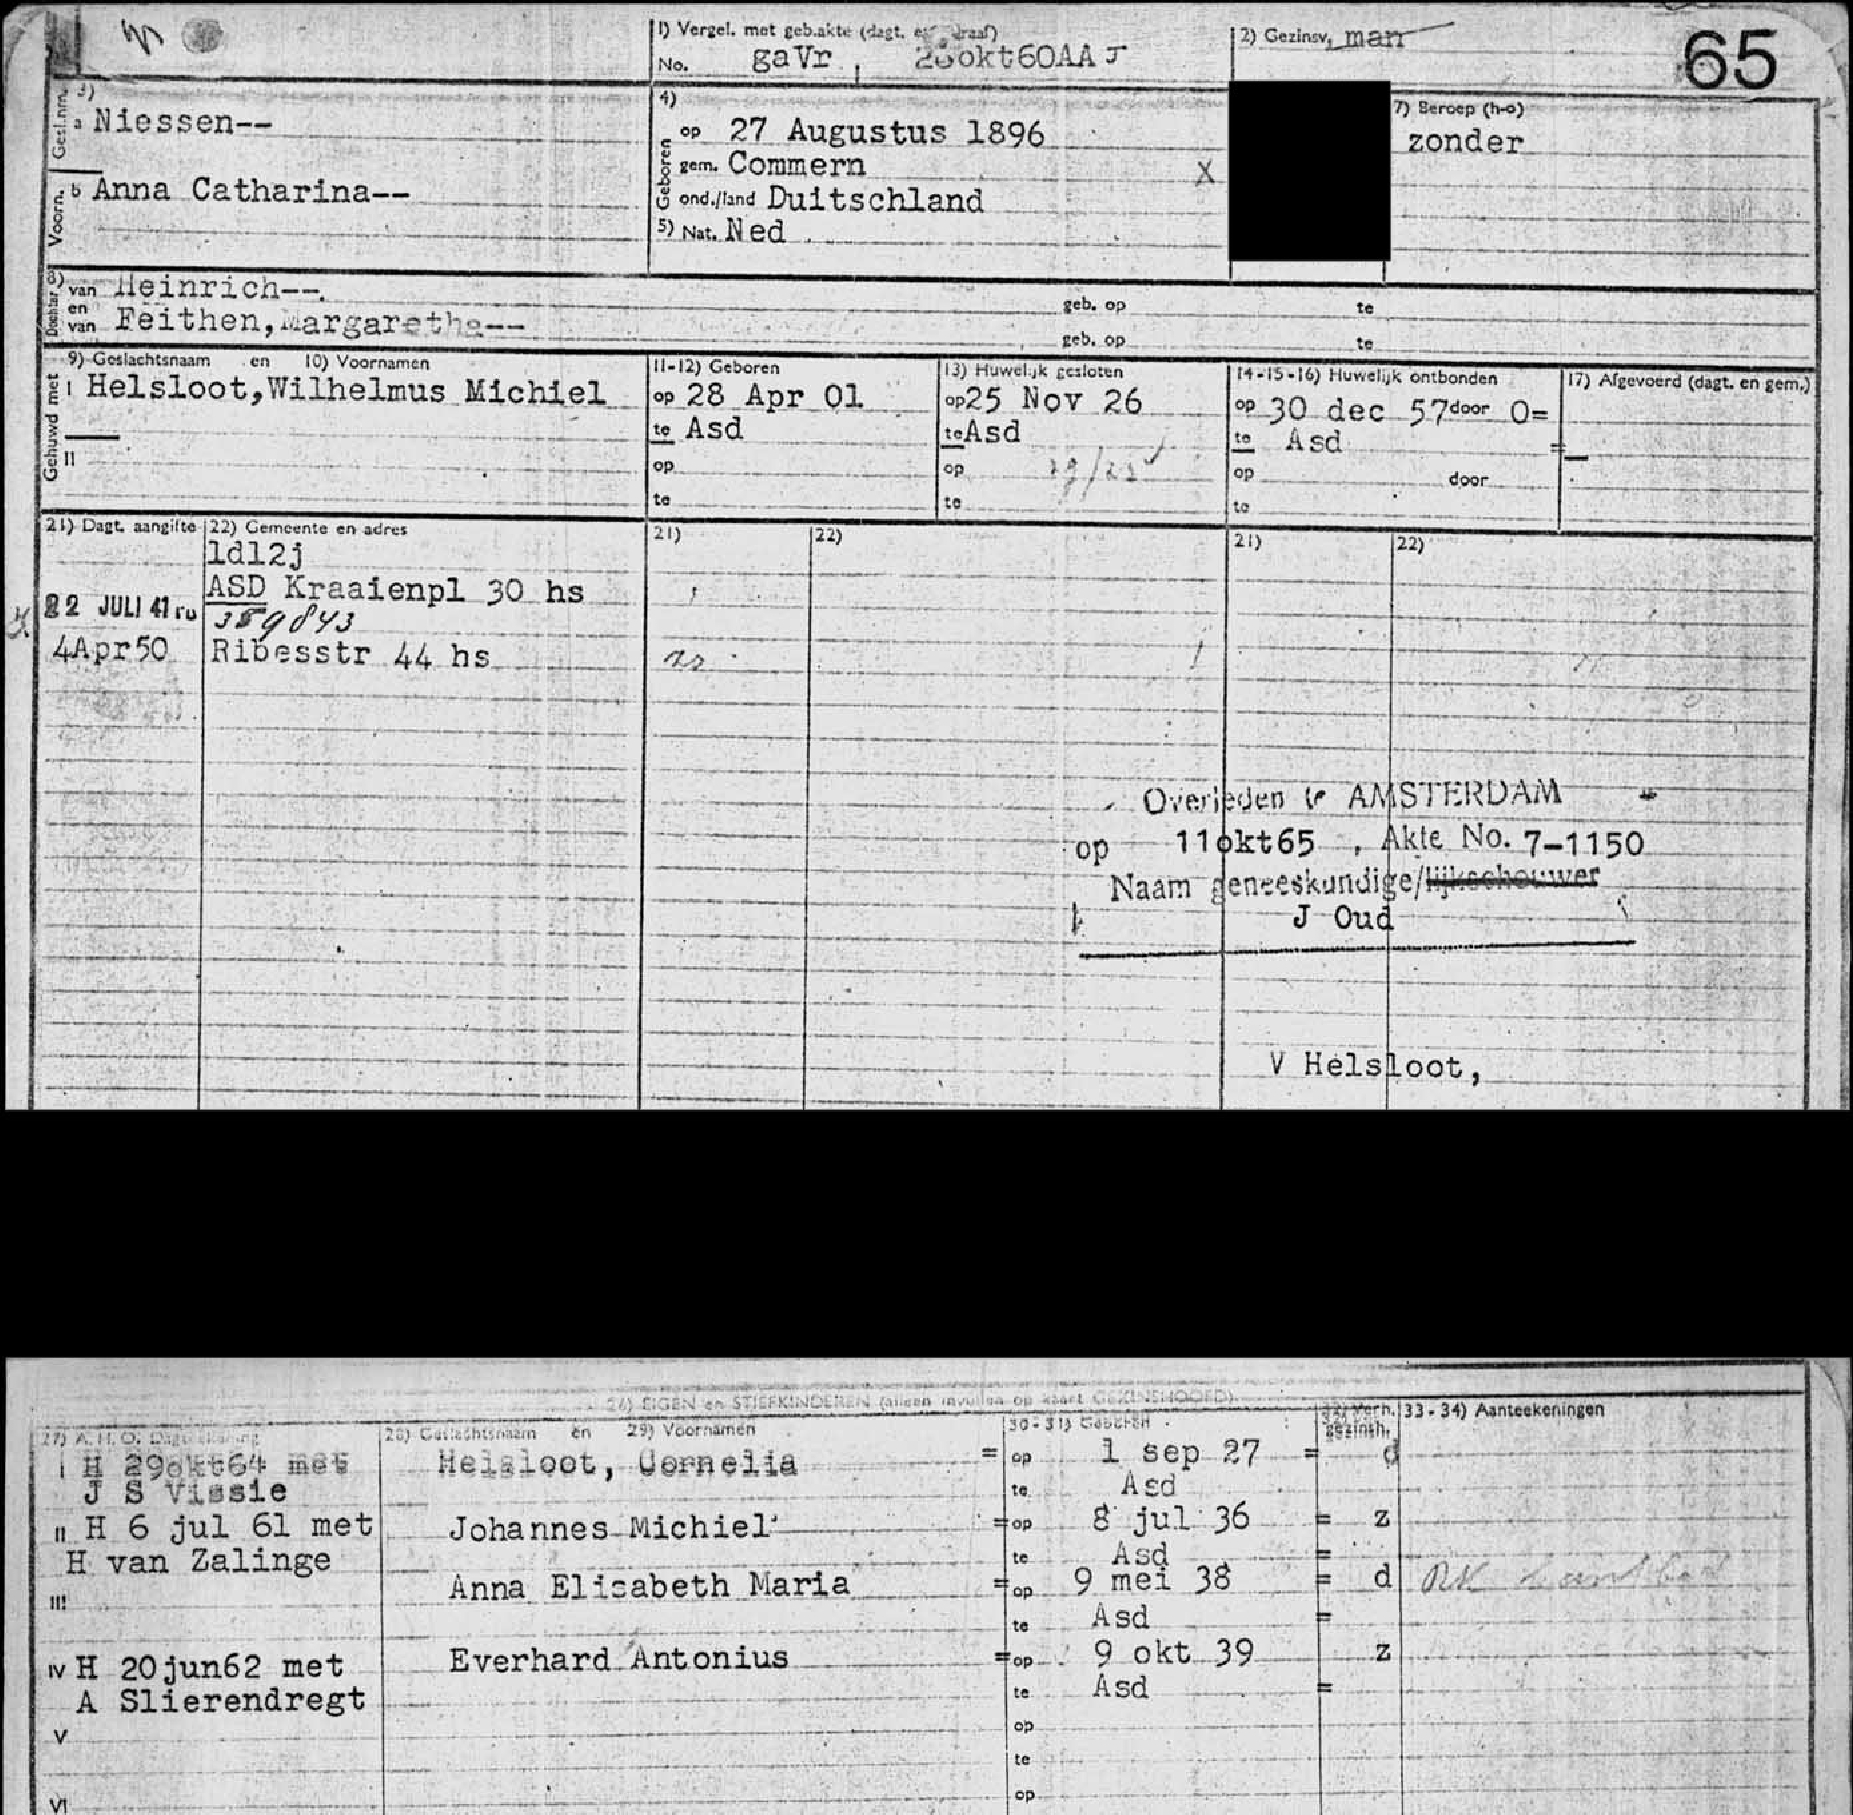 1) Vergel. met geb.akte (dagt. en paraaf)
No. gaVr , okt60AA J
2) Gezinsv. man
65
Gesl.nm. 3) a Niessen--
Voorn. b Anna Catharina--
4)
Geboren op 27 Augustus 1896
gem. Commern X
ond./land Duitschland
5) Nat. Ned .
7) Beroep (h-o)
zonder
8) van Heinrich--. geb. op te
en
van Feithen, Margaretha-- geb. op te
Gehuwd met 9) Geslachtsnaam en 10) Voornamen
I Helsloot, Wilhelmus Michiel
II
11-12) Geboren
op 28 Apr 01
te Asd
op
te
13) Huwelijk gesloten
op 25 Nov 26
te Asd
op
te
14-15-16) Huwelijk ontbonden
op 30 dec 57 door O=
te Asd =
op door
te
17) Afgevoerd (dagt. en gem.)
21) Dagt. aangifte 22) Gemeente en adres 21) 22) 21) 22)
1d12j
22 JULI 41 ru ASD Kraaienpl 30 hs
359843
4Apr50 Ribesstr 44 hs
Overleden te AMSTERDAM
op 11okt65 , Akte No. 7-1150
Naam geneeskundige/lijkschouwer
J Oud
V Helsloot,
26) EIGEN en STIEFKINDEREN (alleen invullen op kaart GEZINSHOOFD)
27) A. H. O. 28) Geslachtsnaam en 29) Voornamen 30-31) Geboren 32) Verh. gezinsh. 33-34) Aanteekeningen
I H 29okt64 met Helsloot, Cornelia = op 1 sep 27 = d
J S Vissie te Asd
II H 6 jul 61 met Johannes Michiel = op 8 jul 36 = z
H van Zalinge te Asd =
III Anna Elisabeth Maria = op 9 mei 38 = d RK
te Asd =
IV H 20jun62 met Everhard Antonius = op 9 okt 39 z
A Slierendregt te Asd =
V op
te
VI op